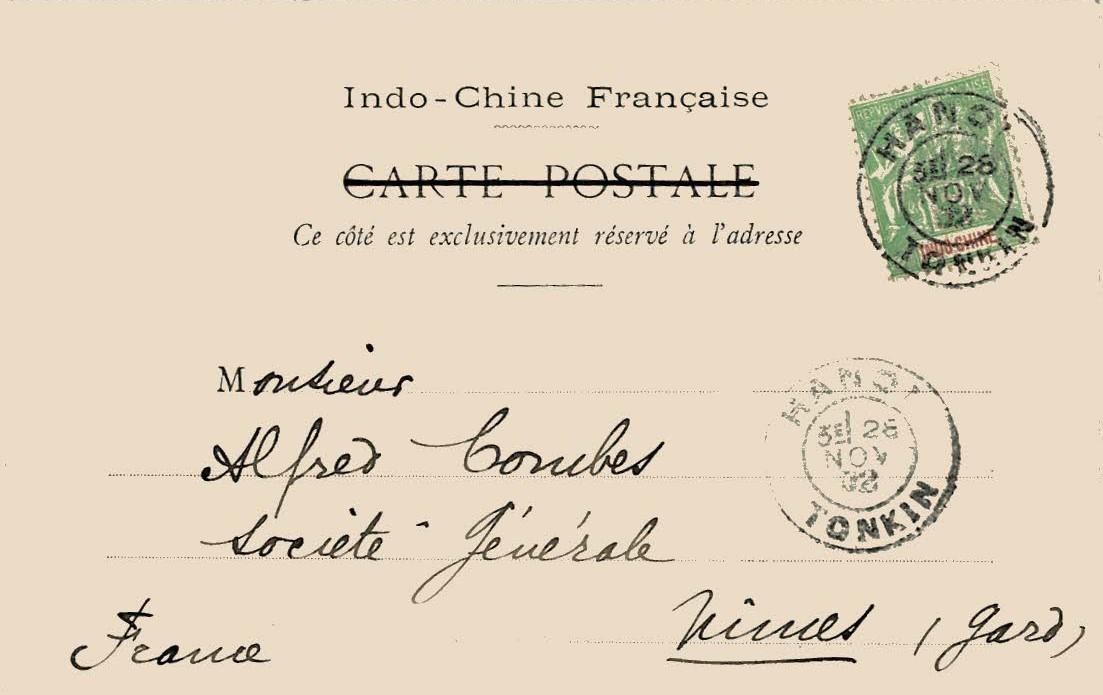 Indo-Chine Française
CARTE POSTALE
Ce côté est exclusivement réservé à l'adresse
RÉPUBLIQUE FRANÇAISE
INDO-CHINE
HANOI
3E/ 28
NOV
02
TONKIN
Monsieur
Alfred Combes
Société Générale
Nîmes (Gard)
France
HANOI
3E/ 28
NOV
02
TONKIN